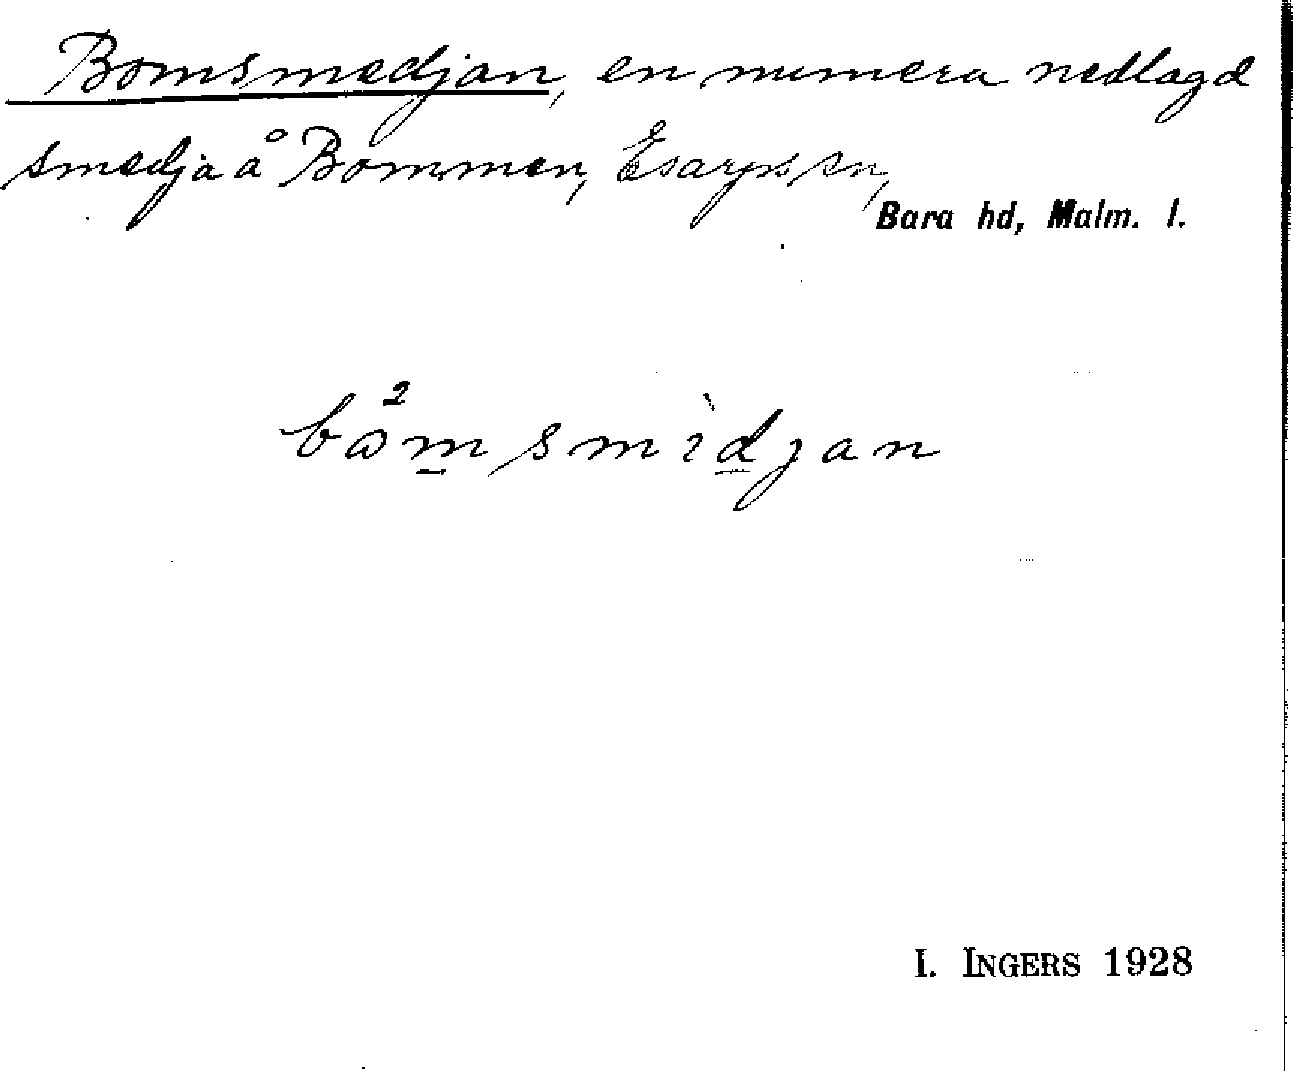 Bomsmedjan, en numera nedlagd
smedja å Bommen, Esarps sn,
Bara hd, Malm. l.
bω²m smìdjan
I. INGERS 1928